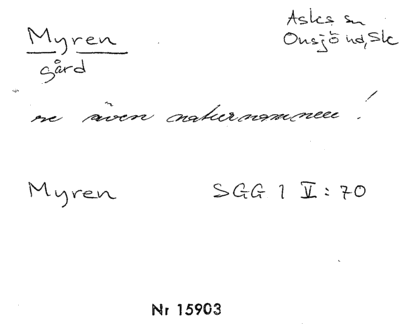 Myren
Asks sn
Onsjö hd, Sk
gård
se även naturnamnen!
Myren SGG 1 V:70
Nr 15903